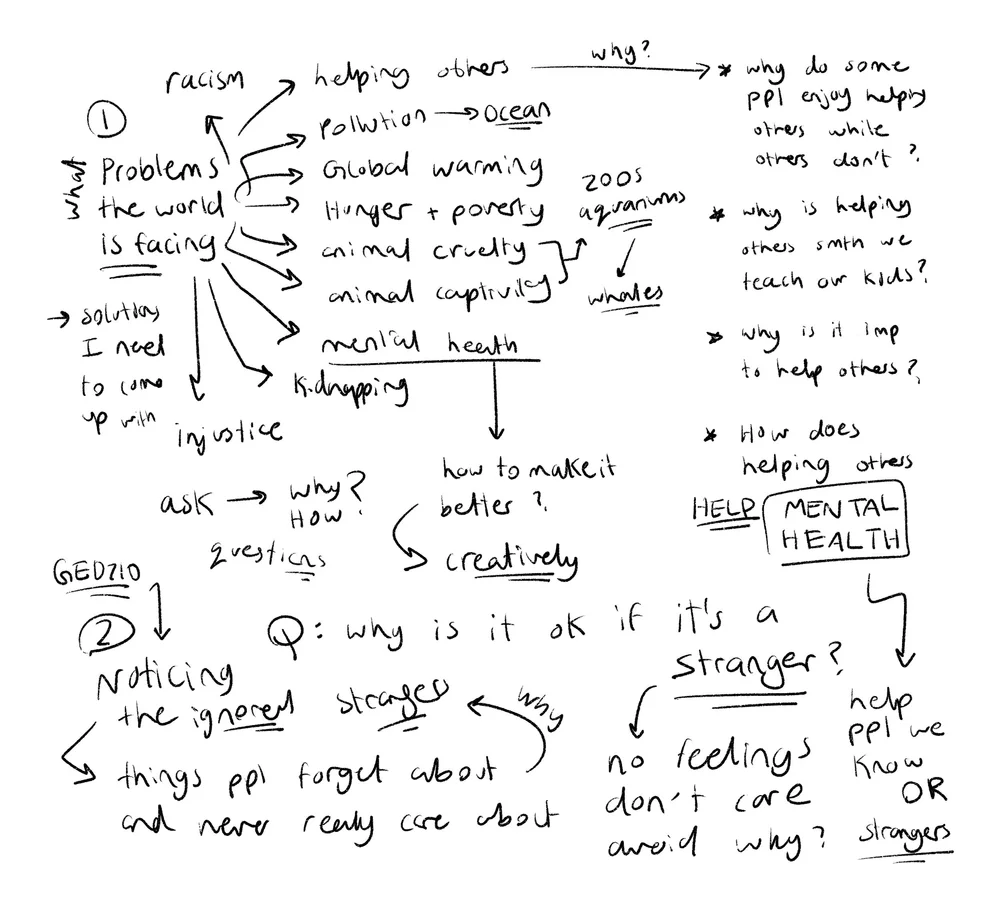 racism
helping others
why?
* why do some
ppl enjoy helping
others while
others don't?
1
what
Problems
the world
is facing
Pollution → ocean
Global warming
Hunger + poverty
animal cruelty
animal captivity
mental health
kidnapping
injustice
zoos
aquariums
whales
* why is helping
others smth we
teach our kids?
* why is it imp
to help others?
* How does
helping others
HELP MENTAL
HEALTH
→ solutions
I need
to come
up with
ask → why?
How?
questions
how to make it
better?
creatively
GED210
2
Noticing
the ignored
stranger
why
things ppl forget about
and never really care about
Q: why is it ok if it's a
stranger?
no feelings
don't care
avoid why?
help
ppl we
know
OR
strangers